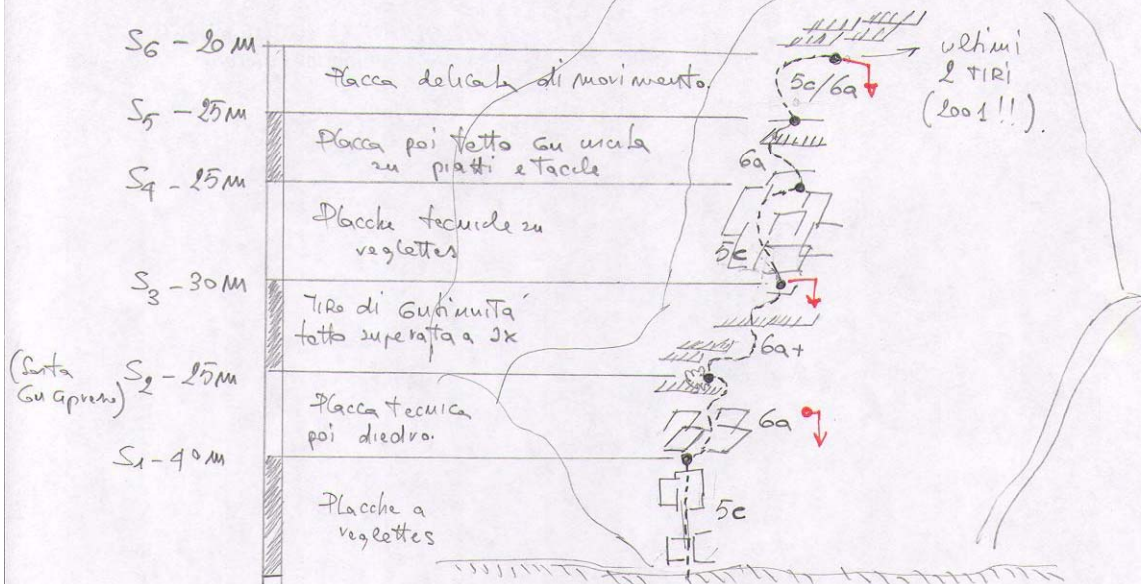 S6 - 20 m
Placca delicata di movimento.
5c/6a
ultimi
2 TIRI
(2001!!).
S5 - 25 m
Placca poi tetto con uscita
su piatti e tacche
6a
S4 - 25 m
Placche tecniche su
veglettes
5c
S3 - 30 m
TIRO di continuità
tetto superato a
6a+
(Sosta
S2 - 25 m
Placca tecnica
poi diedro.
6a
S1 - 40 m
Placche a
veglettes
5c